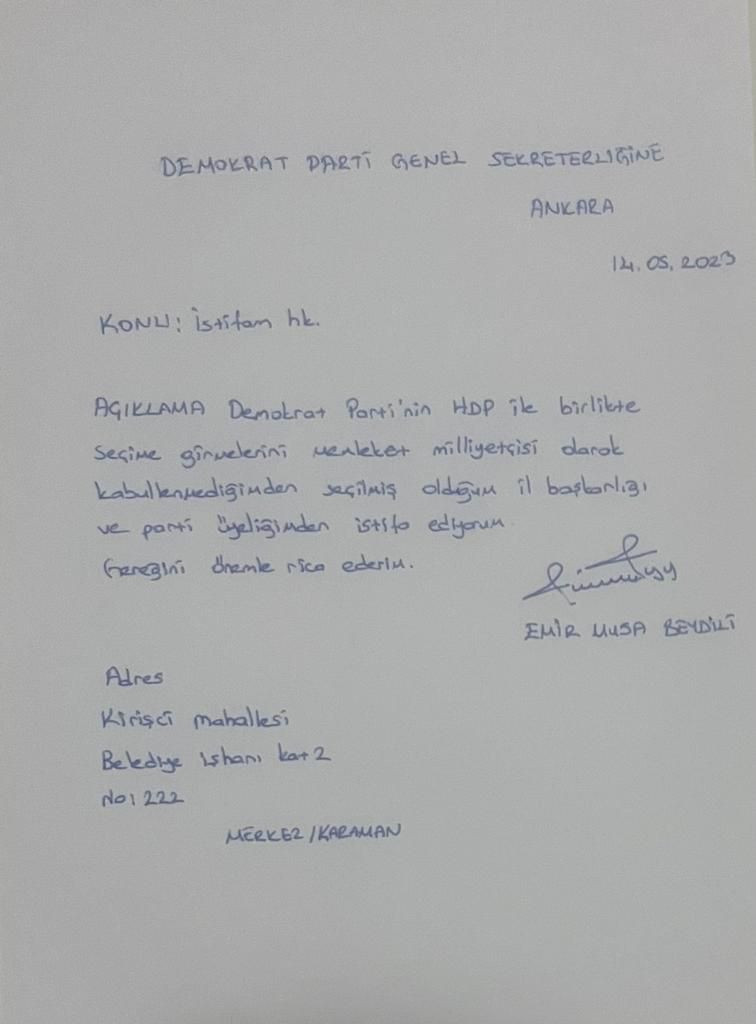 DEMOKRAT PARTİ GENEL SEKRETERLİĞİNE
ANKARA
14.05.2023
KONU: İstifam hk.
AÇIKLAMA Demokrat Parti'nin HDP ile birlikte
seçime girmelerini memleket milliyetçisi olarak
kabullenmediğimden seçilmiş olduğum il başkanlığı
ve parti üyeliğimden istifa ediyorum.
Gereğini önemle rica ederim.
EMİR MUSA BEYDİLİ
Adres
Kirişci mahallesi
Belediye işhanı kat 2
No: 222
MERKEZ/KARAMAN